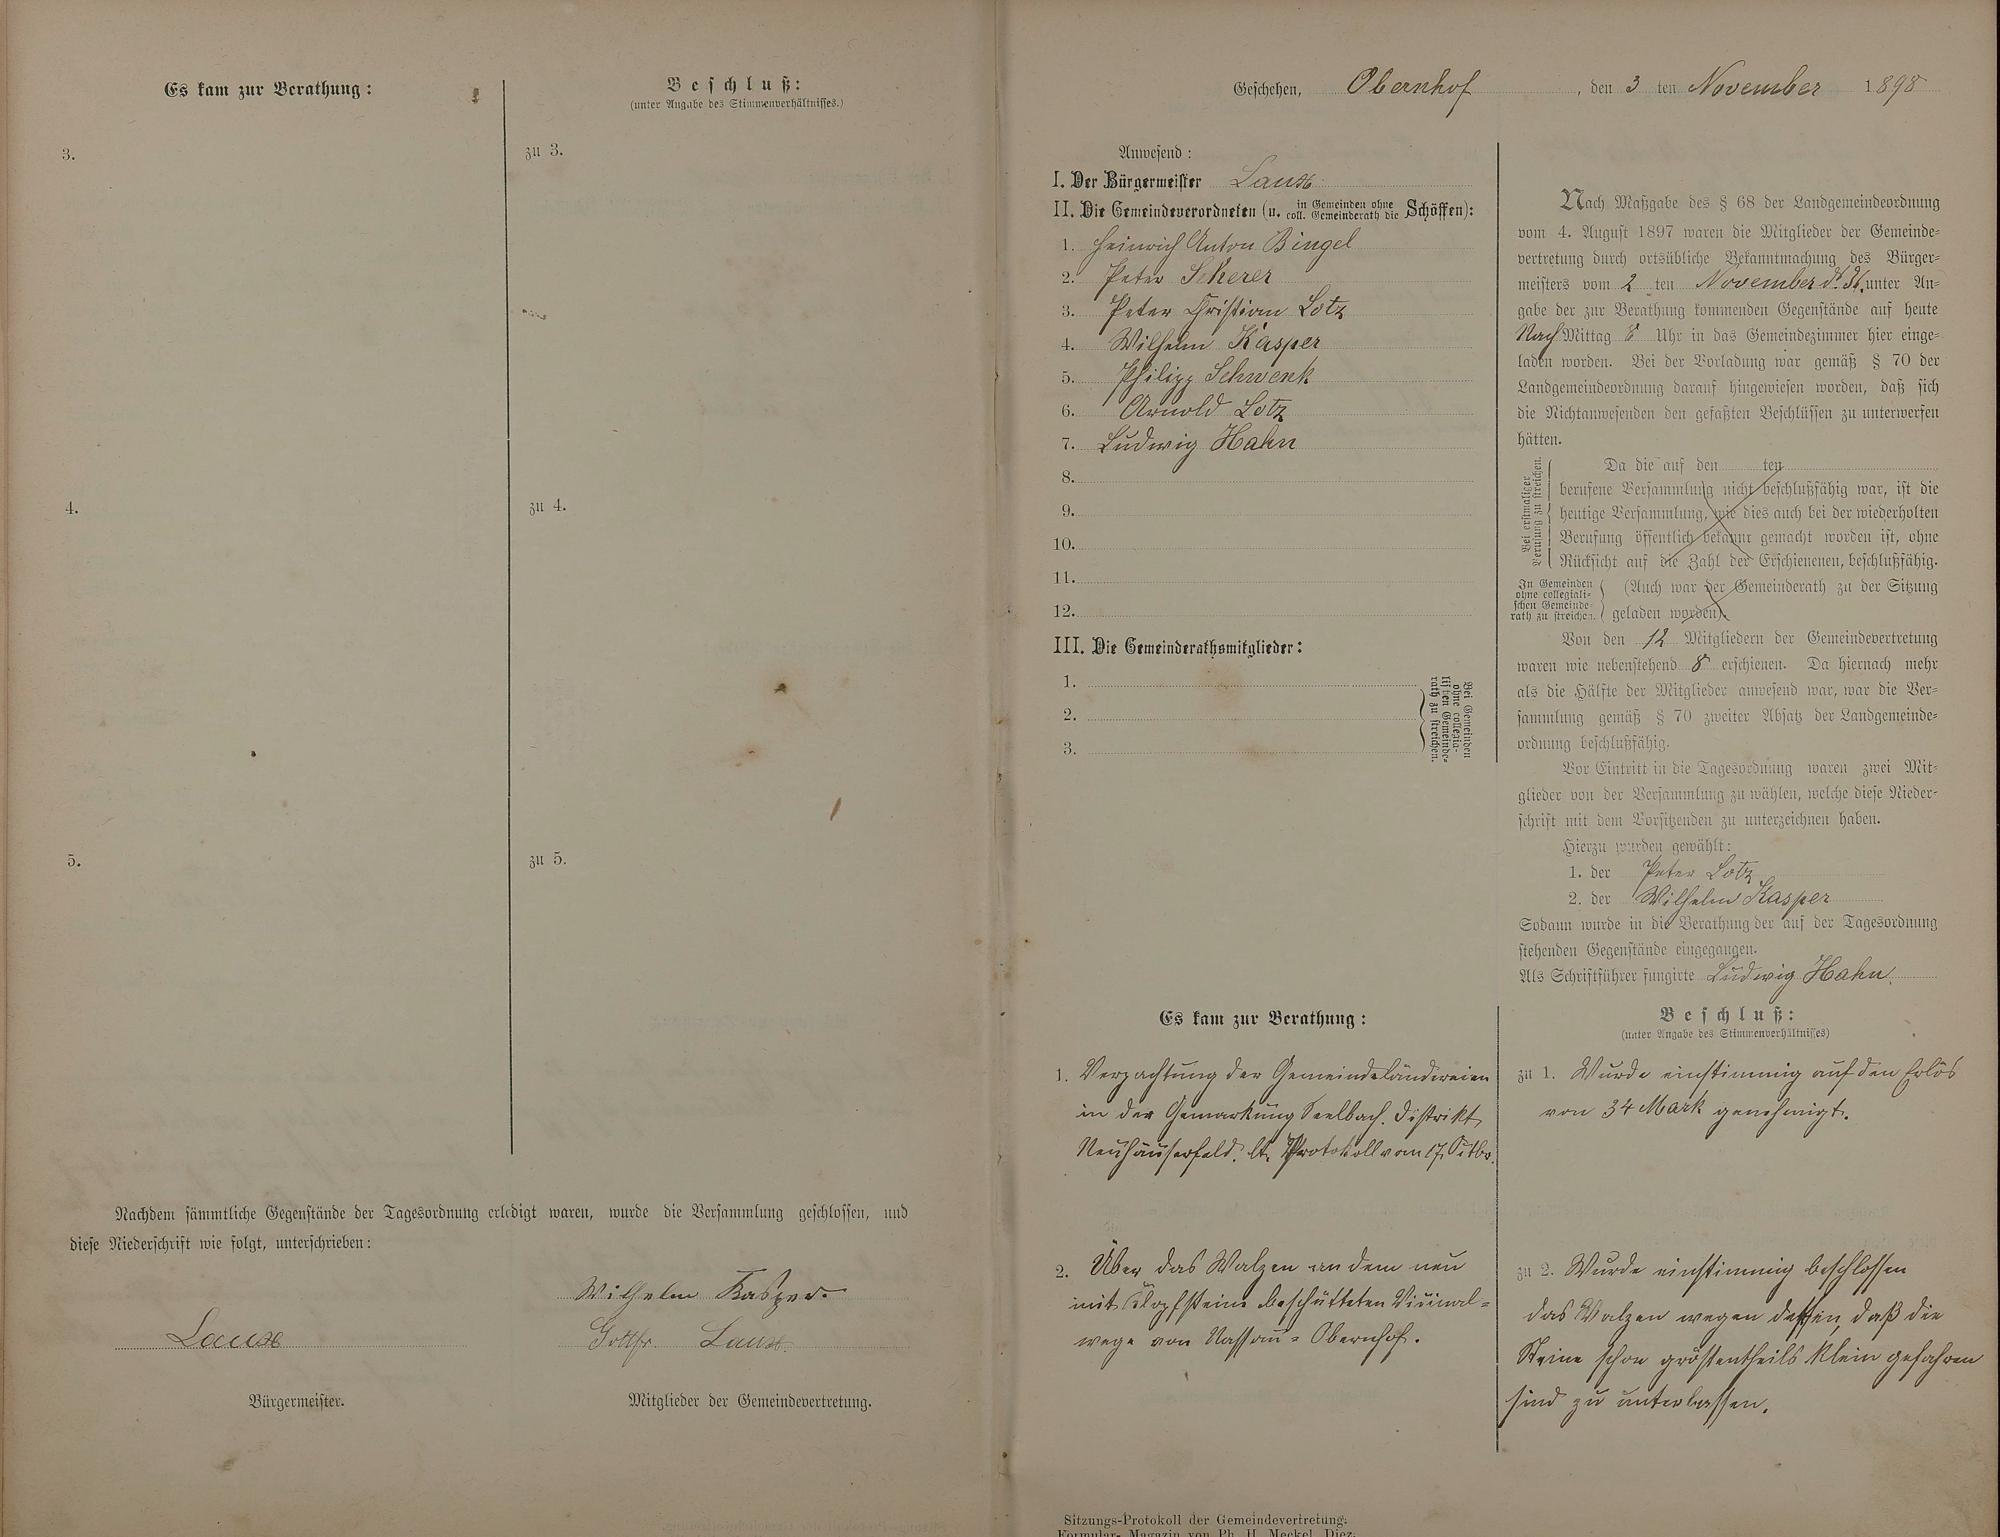 Es kam zur Berathung:
Beschluß:
(unter Angabe des Stimmenverhältnisses.)
3.
zu 3.
4.
zu 4.
5.
zu 5.
Nachdem sämmtliche Gegenstände der Tagesordnung erledigt waren, wurde die Versammlung geschlossen, und
diese Niederschrift wie folgt, unterschrieben:
Wilhelm Kasper.
Laux
Gottfr. Laux.
Bürgermeister.
Mitglieder der Gemeindevertretung.
Geschehen, Obernhof, den 3 ten November 1898
Anwesend:
I. Der Bürgermeister Laux
II. Die Gemeindeverordneten (u. in Gemeinden ohne coll. Gemeinderath die Schöffen):
1. Heinrich Anton Bingel
2. Peter Scherer
3. Peter Christian Lotz
4. Wilhelm Kasper
5. Philipp Schwenk
6. Arnold Lotz
7. Ludwig Hahn
8.
9.
10.
11.
12.
III. Die Gemeinderathsmitglieder:
1.
2.
3.
Bei Gemeinden
ohne collegia-
lischen Gemeinde-
rath zu streichen.
Nach Maßgabe des § 68 der Landgemeindeordnung
vom 4. August 1897 waren die Mitglieder der Gemeinde-
vertretung durch ortsübliche Bekanntmachung des Bürger-
meisters vom 2 ten November d. Js. unter An-
gabe der zur Berathung kommenden Gegenstände auf heute
Nach Mittag 8 Uhr in das Gemeindezimmer hier einge-
laden worden. Bei der Vorladung war gemäß § 70 der
Landgemeindeordnung darauf hingewiesen worden, daß sich
die Nichtanwesenden den gefaßten Beschlüssen zu unterwerfen
hätten.
Bei erstmaliger
Berufung zu streichen.
Da die auf den ten
berufene Versammlung nicht beschlußfähig war, ist die
heutige Versammlung, wie dies auch bei der wiederholten
Berufung öffentlich bekannt gemacht worden ist, ohne
Rücksicht auf die Zahl der Erschienenen, beschlußfähig.
In Gemeinden
ohne collegiali-
schen Gemeinde-
rath zu streichen.
(Auch war der Gemeinderath zu der Sitzung
geladen worden).
Von den 12 Mitgliedern der Gemeindevertretung
waren wie nebenstehend 8 erschienen. Da hiernach mehr
als die Hälfte der Mitglieder anwesend war, war die Ver-
sammlung gemäß § 70 zweiter Absatz der Landgemeinde-
ordnung beschlußfähig.
Vor Eintritt in die Tagesordnung waren zwei Mit-
glieder von der Versammlung zu wählen, welche diese Nieder-
schrift mit dem Vorsitzenden zu unterzeichnen haben.
Hierzu wurden gewählt:
1. der Peter Lotz
2. der Wilhelm Kasper
Sodann wurde in die Berathung der auf der Tagesordnung
stehenden Gegenstände eingegangen.
Als Schriftführer fungirte Ludwig Hahn.
Es kam zur Berathung:
Beschluß:
(unter Angabe des Stimmenverhältnisses)
1. Verpachtung der Gemeindeländereien
in der Gemarkung Seelbach. Distrikt
Neuhäuserfeld. lt. Protokoll vom 17. Octbr.
zu 1. Wurde einstimmig auf den Erlös
von 34 Mark genehmigt.
2. Über das Walzen an dem neu
mit Klopfsteine beschütteten Vicinal-
wege von Nassau-Obernhof.
zu 2. Wurde einstimmig beschlossen
das Walzen wegen dessen, daß die
Steine schon gröstentheils klein gefahren
sind zu unterlassen.
Sitzungs-Protokoll der Gemeindevertretung.
Formular-Magazin von Ph. H. Meckel, Diez.